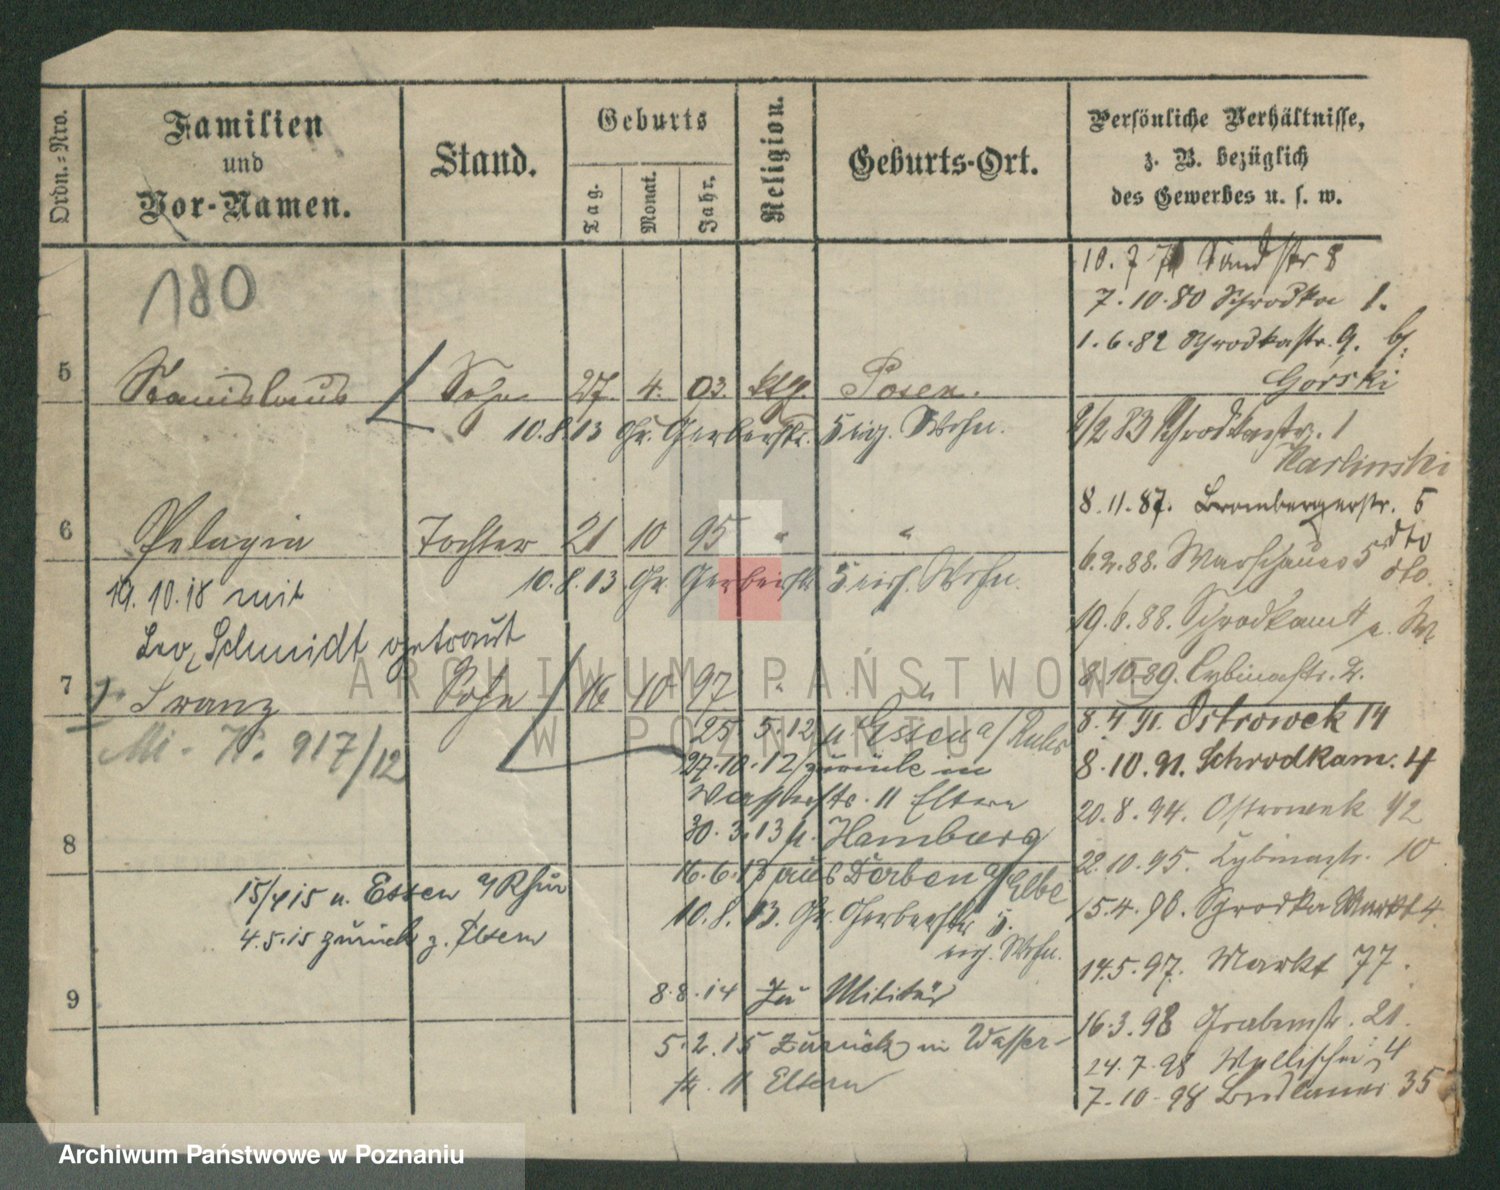 Ordn.-Nro.
Familien
und
Vor-Namen.
Stand.
Geburts
Tag.
Monat.
Jahr.
Religion.
Geburts-Ort.
Persönliche Verhältnisse,
z. B. bezüglich
des Gewerbes u. s. w.
180
5 Stanislaus Sohn 27. 4. 03. ktl. Posen.
10.8.13 Gr. Gerberstr. 5 eig. Wohn.
6 Pelagia Tochter 21 10 95 " "
10.8.13 Gr. Gerberstr. 5 Wohn.
19.10.18 mit
Leo Schmidt getraut
7 Franz Sohn 16 10 97 "
Mi. N. 917/12
25 5.12 n. Essen a/Ruhr
27.10.12 zurück in
Wasserstr. 11 Eltern
8
30.3.13 n. Hamburg
16.6.13 aus Derben a/Elbe
10.8.13. Gr. Gerberstr. 5.
eig. Wohn.
15/4 15 n. Essen a/Ruhr
4.5.15 zurück z. Eltern
9
8.8.14 Zu Militär
5.2.15 zurück in Wasser-
str. 11 Eltern
10.7.7 Sandstr 8
7.10.80 Schrodka 1.
1.6.82 Schrodkastr. 9. b/
Górski
2/2 83 Schrodkastr. 1
Karlinski
8.11.87. Brombergerstr. 5
dto
6.2.88. Warschauer 5 dto.
19.6.88. Schrodkamt
8.10.89. Cybinastr. 2.
8.4.91. Ostrowek 14
8.10.91. Schrodkam. 4
20.8.94. Ostrowek 1/2
22.10.95. Cybinastr. 10
15.4.96. Schrodka Markt 4
14.5.97. Markt 77.
16.3.98 Grabenstr. 21.
24.7.98 Wallischei 4
7.10.98 Breslauer 35
ARCHIWUM PAŃSTWOWE
W POZNANIU
Archiwum Państwowe w Poznaniu